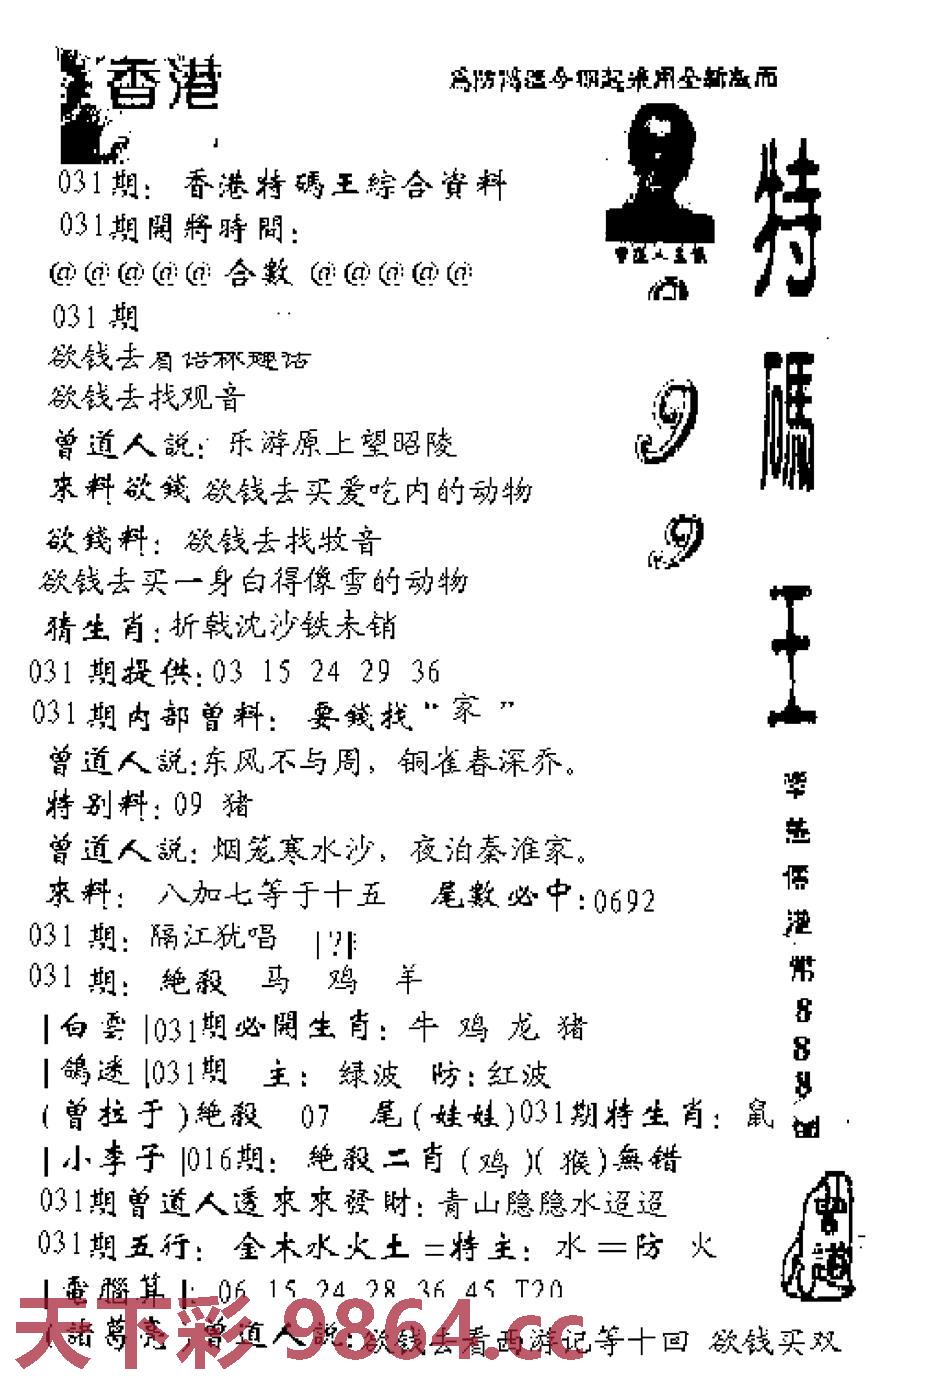 香港
031期：香港特碼王綜合資料
031期開將時間：
@@@@@合數@@@@@
031期
欲钱去
欲钱去找观音
曾道人説：乐游原上望昭陵
來料欲錢 欲钱去买爱吃内的动物
欲錢料：欲钱去找牧音
欲钱去买一身白得像雪的动物
猜生肖：折戟沈沙铁未销
031期提供：03 15 24 29 36
031期内部曾料：要錢找“家”
曾道人説：东风不与周，铜雀春深乔。
特别料：09 猪
曾道人説：烟笼寒水沙，夜泊秦淮家。
來料：八加七等于十五 尾數必中：0692
031期：隔江犹唱 |?|
031期：絶殺 马 鸡 羊
|白雲|031期必開生肖：牛 鸡 龙 猪
|鴿迷|031期 主：绿波 防：红波
(曾拉于)絶殺 07 尾(娃娃)031期特生肖：鼠
|小李子|016期：絶殺二肖(鸡)(猴)無错
031期曾道人透來來發財：青山隐隐水迢迢
031期五行：金木水火土=特主：水=防 火
|電腦算|：06 15 24 28 36 45 T20
(諸葛亮)曾道人説：欲钱去看西游记等十回 欲钱买双
特碼王
9
9
港幣888
曾道
天下彩 9864.cc